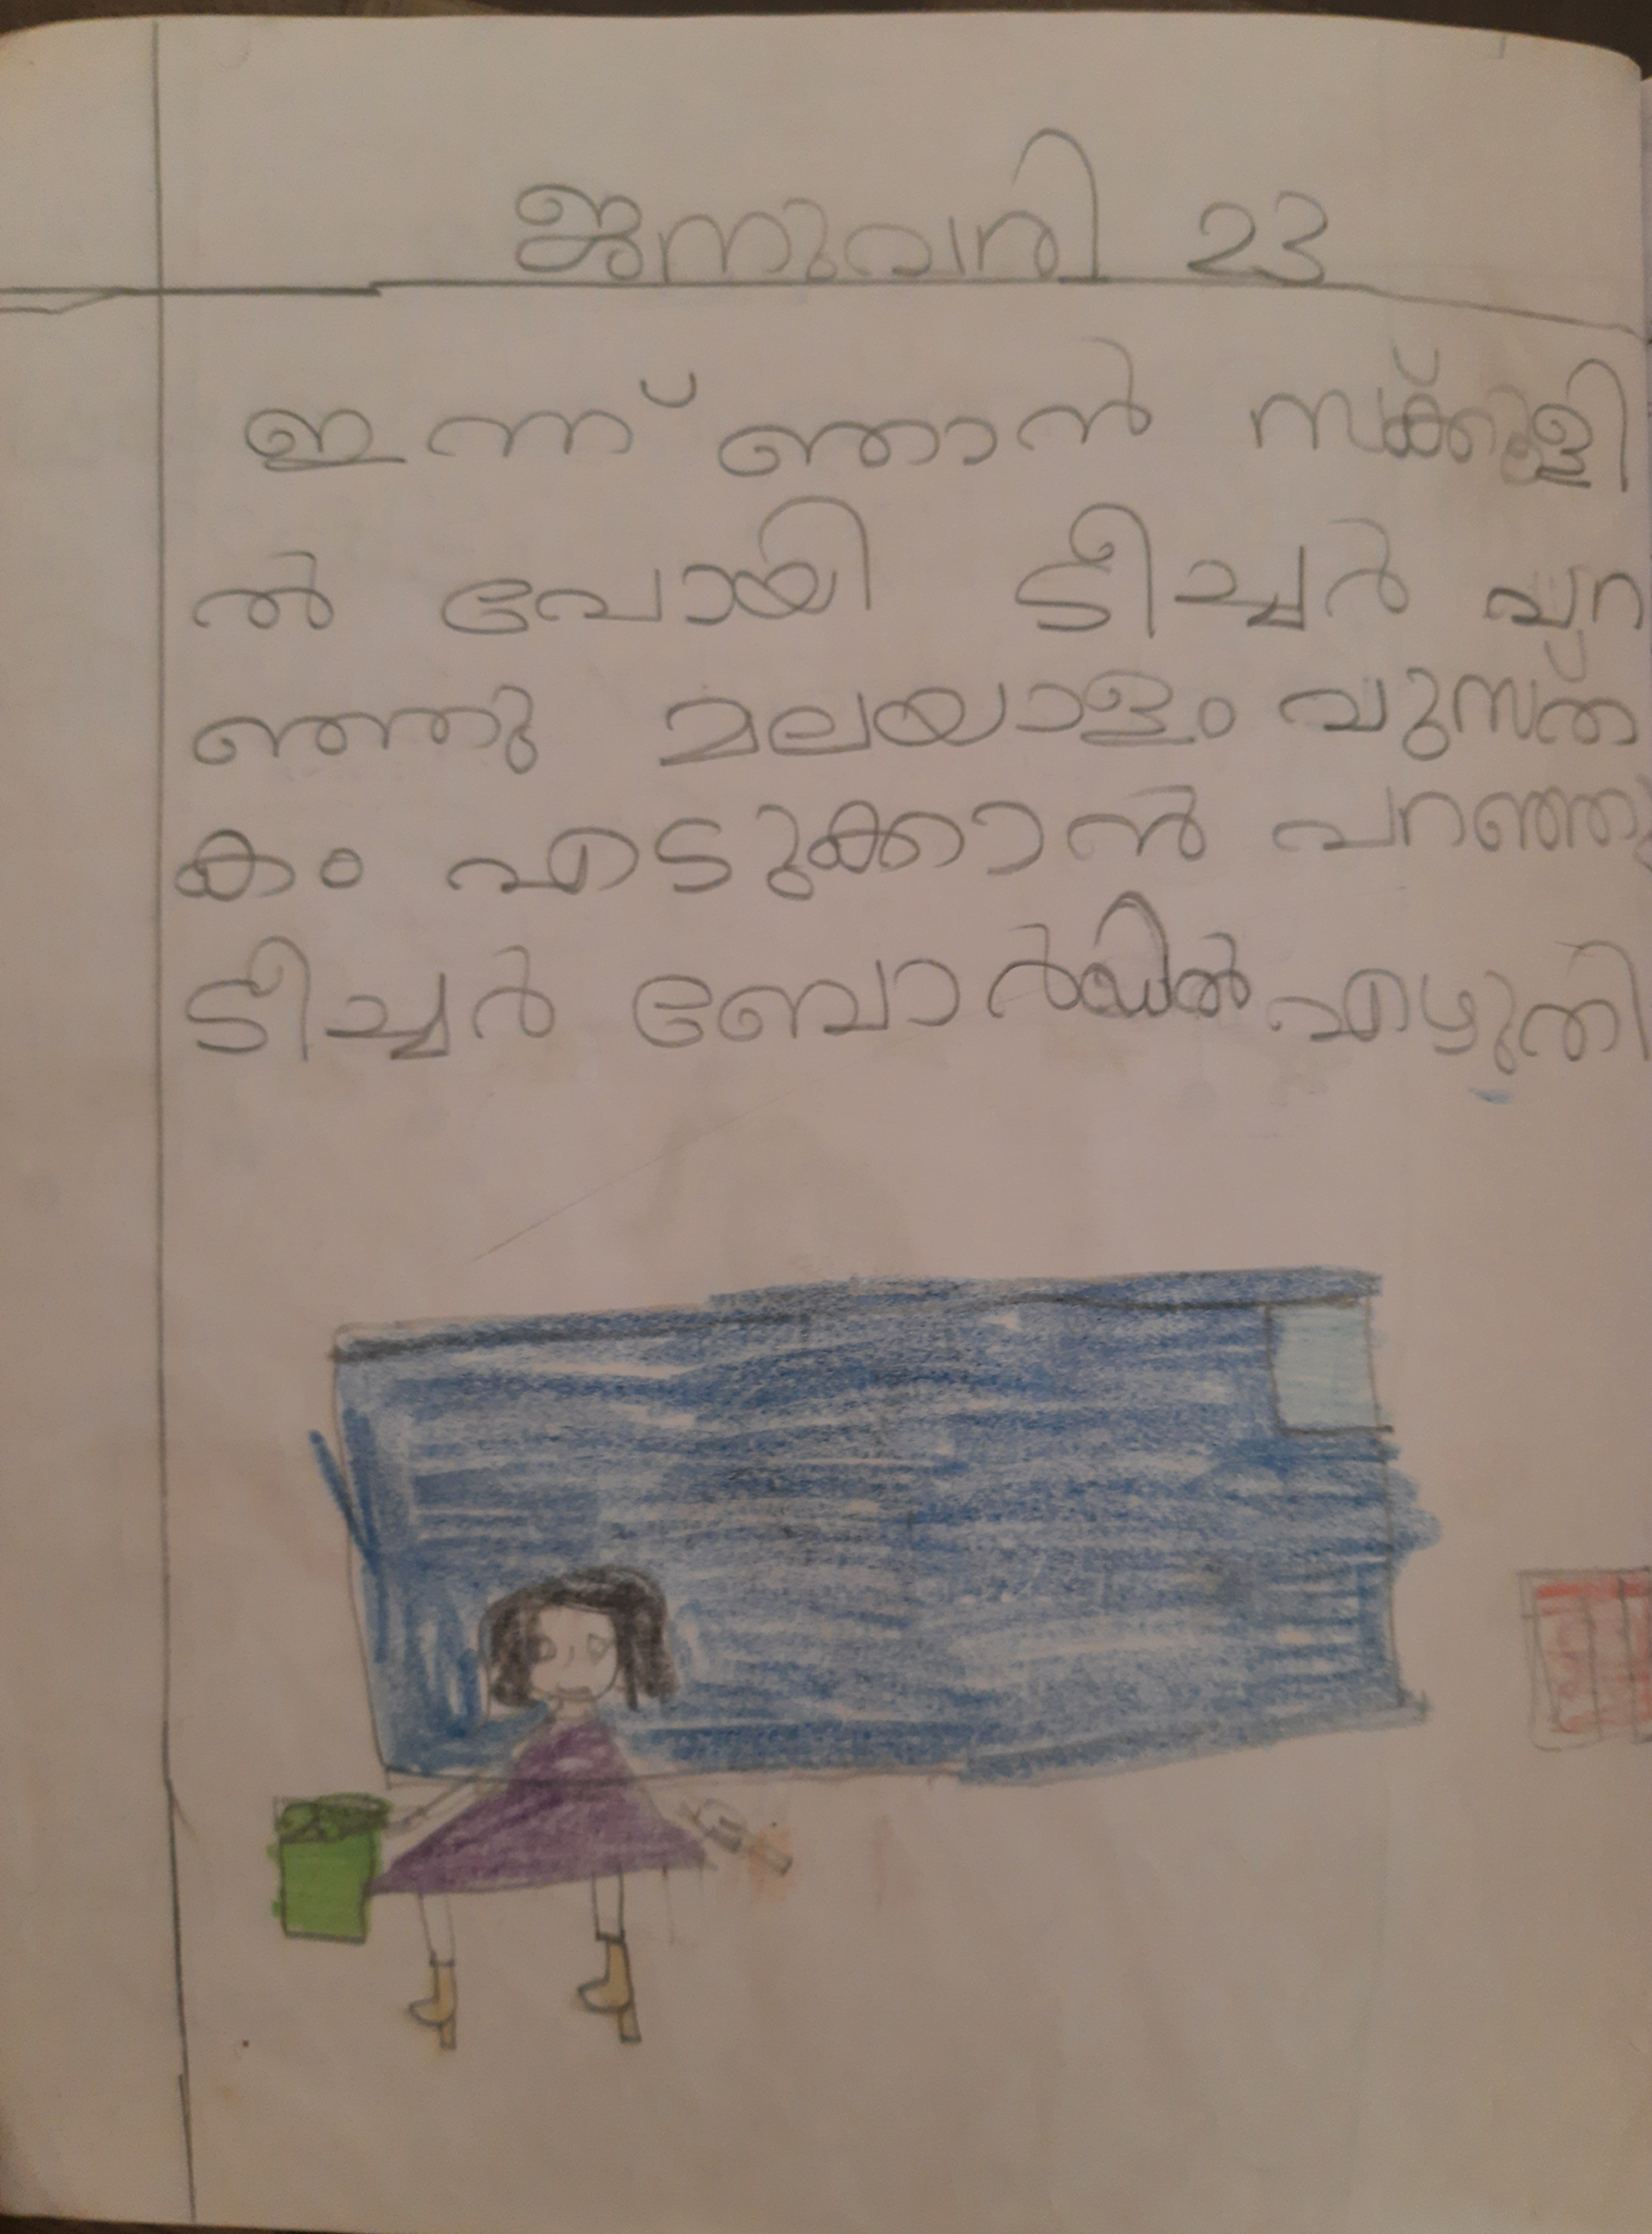 ജനുവരി 23
ഇന്ന് ഞാൻ സ്ക്കൂളി
ൽ പോയി ടീച്ചർ പറ
ഞ്ഞു മലയാളം പുസ്ത
കം എടുക്കാൻ പറഞ്ഞു
ടീച്ചർ ബോർഡിൽ എഴുതി